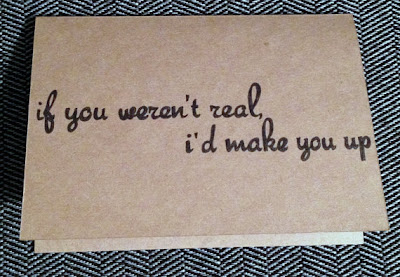 if you weren't real,
i'd make you up